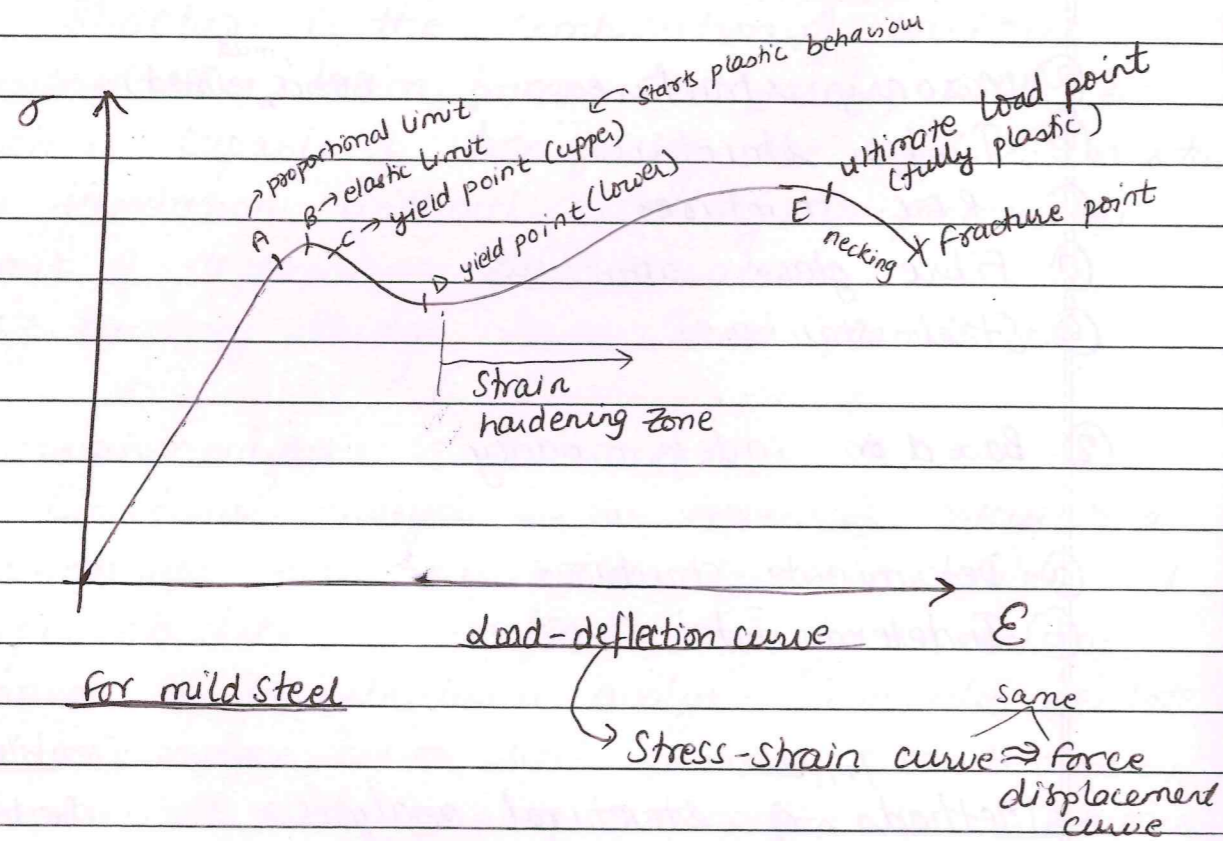 σ
A → proportional limit
B → elastic limit
C → yield point (upper) ← starts plastic behaviour
D yield point (lower)
E
ultimate load point
(fully plastic)
necking
fracture point
Strain
hardening zone
Load-deflection curve
ε
For mild steel
same
→ Stress-strain curve ⇒ force
displacement
curve